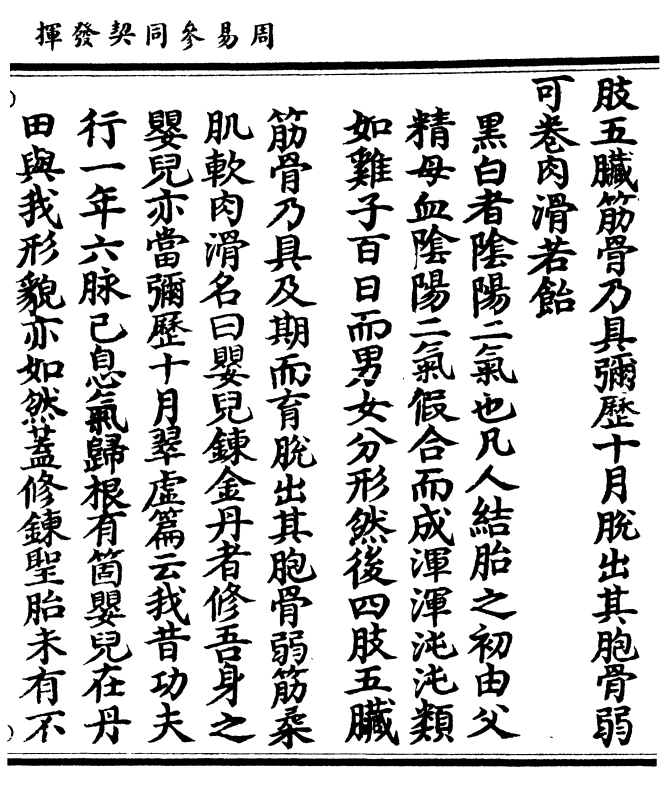 周易參同契發揮
肢五臟筋骨乃具彌歷十月脫出其胞骨弱
可卷肉滑若飴
黑白者陰陽二氣也凡人結胎之初由父
精母血陰陽二氣假合而成渾渾沌沌類
如雞子百日而男女分形然後四肢五臟
筋骨乃具及期而育脫出其胞骨弱筋桑
肌軟肉滑名曰嬰兒鍊金丹者修吾身之
嬰兒亦當彌歷十月翠虛篇云我昔功夫
行一年六脉已息氣歸根有箇嬰兒在丹
田與我形貌亦如然蓋修鍊聖胎未有不